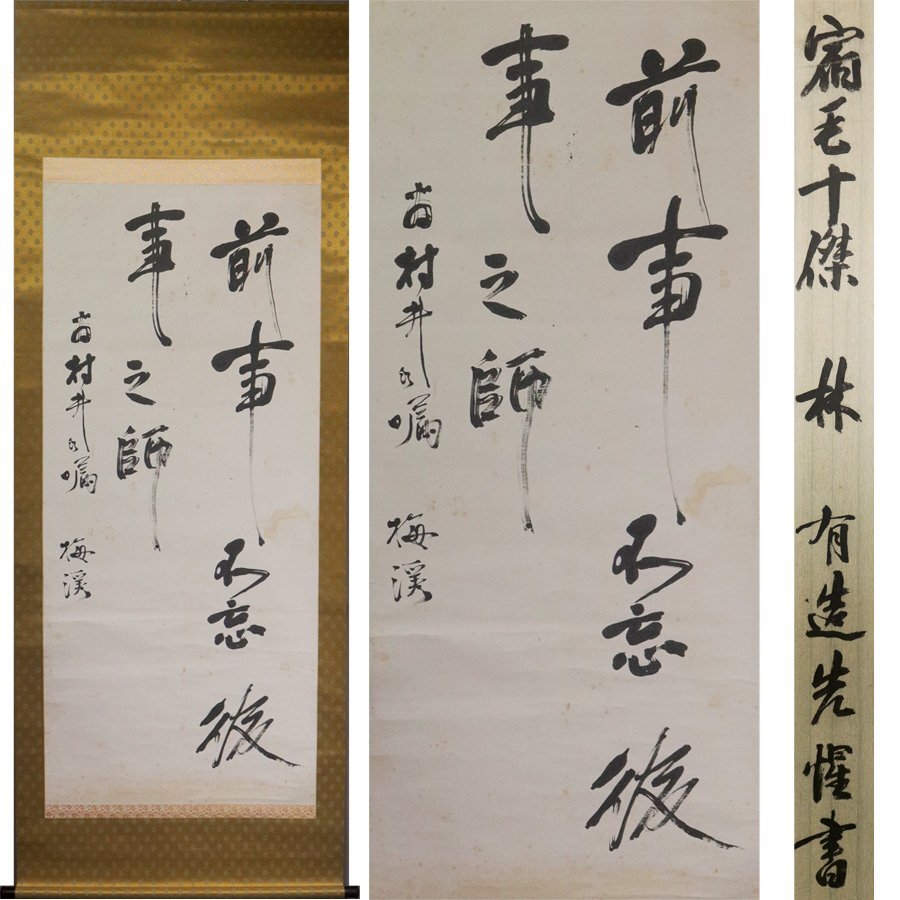 前事不忘後
事之師
村井氏嘱 梅溪
前事不忘後
事之師
村井氏嘱 梅溪
宿毛十傑 林 有造先書